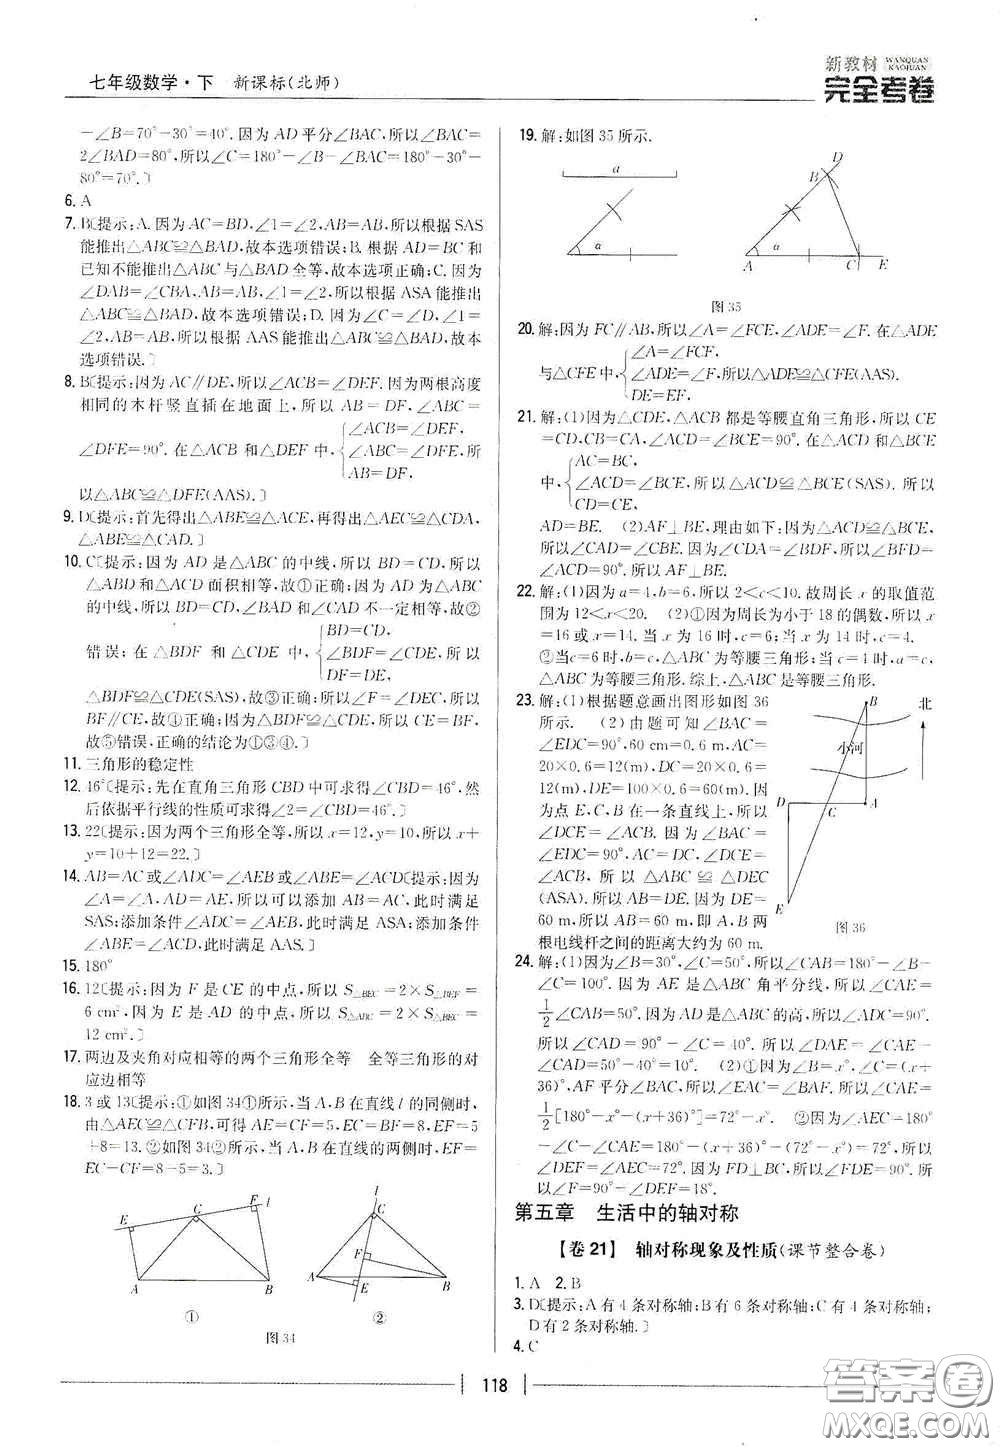 七年级数学·下 新课标(北师)
新教材 WANQUAN KAOJUAN
完全考卷
-∠B=70°-30°=40°.因为AD平分∠BAC,所以∠BAC=
2∠BAD=80°,所以∠C=180°-∠B-∠BAC=180°-30°-
80°=70°.〕
6. A
7. B〔提示:A.因为AC=BD,∠1=∠2,AB=AB,所以根据SAS
能推出△ABC≌△BAD,故本选项错误;B.根据AD=BC和
已知不能推出△ABC与△BAD全等,故本选项正确;C.因为
∠DAB=∠CBA,AB=AB,∠1=∠2,所以根据ASA能推出
△ABC≌△BAD,故本选项错误;D.因为∠C=∠D,∠1=∠
2,AB=AB,所以根据AAS能推出△ABC≌△BAD,故本
选项错误.〕
8. B〔提示:因为AC∥DE,所以∠ACB=∠DEF.因为两根高度
相同的木杆竖直插在地面上,所以AB=DF,∠ABC=
∠DFE=90°.在△ACB和△DEF中,{∠ACB=∠DEF,
∠ABC=∠DFE,所
AB=DF,
以△ABC≌△DFE(AAS).〕
9. D〔提示:首先得出△ABE≌△ACE,再得出△AEC≌△CDA,
△ABC≌△CAD.〕
10. C〔提示:因为AD是△ABC的中线,所以BD=CD,所以
△ABD和△ACD面积相等,故①正确;因为AD为△ABC
的中线,所以BD=CD,∠BAD和∠CAD不一定相等,故②
错误;在△BDF和△CDE中,{BD=CD,
∠BDF=∠CDE,所以
DF=DE,
△BDF≌△CDE(SAS),故③正确;所以∠F=∠DEC,所以
BF∥CE,故④正确;因为△BDF≌△CDE,所以CE=BF,
故⑤错误,正确的结论为①③④.〕
11. 三角形的稳定性
12. 46°〔提示:先在直角三角形CBD中可求得∠CBD=46°,然
后依据平行线的性质可求得∠2=∠CBD=46°.〕
13. 22〔提示:因为两个三角形全等,所以x=12,y=10,所以x+
y=10+12=22.〕
14. AB=AC或∠ADC=∠AEB或∠ABE=∠ACD〔提示:因为
∠A=∠A,AD=AE,所以可以添加AB=AC,此时满足
SAS;添加条件∠ADC=∠AEB,此时满足ASA;添加条件
∠ABE=∠ACD,此时满足AAS.〕
15. 180°
16. 12〔提示:因为F是CE的中点,所以S△BEC=2×S△BEF=
6 cm²,因为E是AD的中点,所以S△ABC=2×S△BEC=
12 cm².〕
17. 两边及夹角对应相等的两个三角形全等 全等三角形的对
应边相等
18. 3或13〔提示:①如图34①所示,当A,B在直线l的同侧时,
由△AEC≌△CFB,可得AE=CF=5,EC=BF=8,EF=5
+8=13.②如图34②所示,当A,B在直线的两侧时,EF=
EC-CF=8-5=3.〕
E C F l A B
①
l C F A E B
②
图34
19. 解:如图35所示.
a
α
A B C D E α
图35
20. 解:因为FC∥AB,所以∠A=∠FCE,∠ADE=∠F.在△ADE
与△CFE中,{∠A=∠FCF,
∠ADE=∠F,所以△ADE≌△CFE(AAS).
DE=EF,
21. 解:(1)因为△CDE,△ACB都是等腰直角三角形,所以CE
=CD,CB=CA,∠ACD=∠BCE=90°.在△ACD和△BCE
中,{AC=BC,
∠ACD=∠BCE,所以△ACD≌△BCE(SAS).所以
CD=CE,
AD=BE. (2)AF⊥BE,理由如下:因为△ACD≌△BCE,
所以∠CAD=∠CBE.因为∠CDA=∠BDF,所以∠BFD=
∠ACD=90°.所以AF⊥BE.
22. 解:(1)因为a=4,b=6,所以2<c<10.故周长x的取值范
围为12<x<20. (2)①因为周长为小于18的偶数,所以x
=16或x=14.当x为16时,c=6;当x为14时,c=4.
②当c=6时,b=c,△ABC为等腰三角形;当c=4时,a=
c,△ABC为等腰三角形.综上,△ABC是等腰三角形.
23. 解:(1)根据题意画出图形如图36
所示. (2)由题可知∠BAC=
∠EDC=90°,60 cm=0.6 m,AC=
20×0.6=12(m),DC=20×0.6=
12(m),DE=100×0.6=60(m),因
为点E,C,B在一条直线上,所以
∠DCE=∠ACB.因为∠BAC=
∠EDC=90°,AC=DC,∠DCE=
∠ACB,所以△ABC≌△DEC
(ASA).所以AB=DE.因为DE=
60 m,所以AB=60 m,即A,B两
根电线杆之间的距离大约为60 m.
B 北 小河 D C A E
图36
24. 解:(1)因为∠B=30°,∠C=50°,所以∠CAB=180°-∠B-
∠C=100°.因为AE是△ABC角平分线,所以∠CAE=
1/2∠CAB=50°.因为AD是△ABC的高,所以∠ADC=90°.
所以∠CAD=90°-∠C=40°.所以∠DAE=∠CAE-
∠CAD=50°-40°=10°. (2)①因为∠B=x°,∠C=(x+
36)°,AF平分∠BAC,所以∠EAC=∠BAF.所以∠CAE=
1/2[180°-x°-(x+36)°]=72°-x°. ②因为∠AEC=180°
-∠C-∠CAE=180°-(x+36)°-(72°-x°)=72°,所以
∠DEF=∠AEC=72°.因为FD⊥BC,所以∠FDE=90°.所
以∠F=90°-∠DEF=18°.
第五章 生活中的轴对称
【卷21】 轴对称现象及性质(课节整合卷)
1. A 2. B
3. D〔提示:A有4条对称轴;B有6条对称轴;C有4条对称轴;
D有2条对称轴.〕
4. C
118
答案圈
MXQE.COM